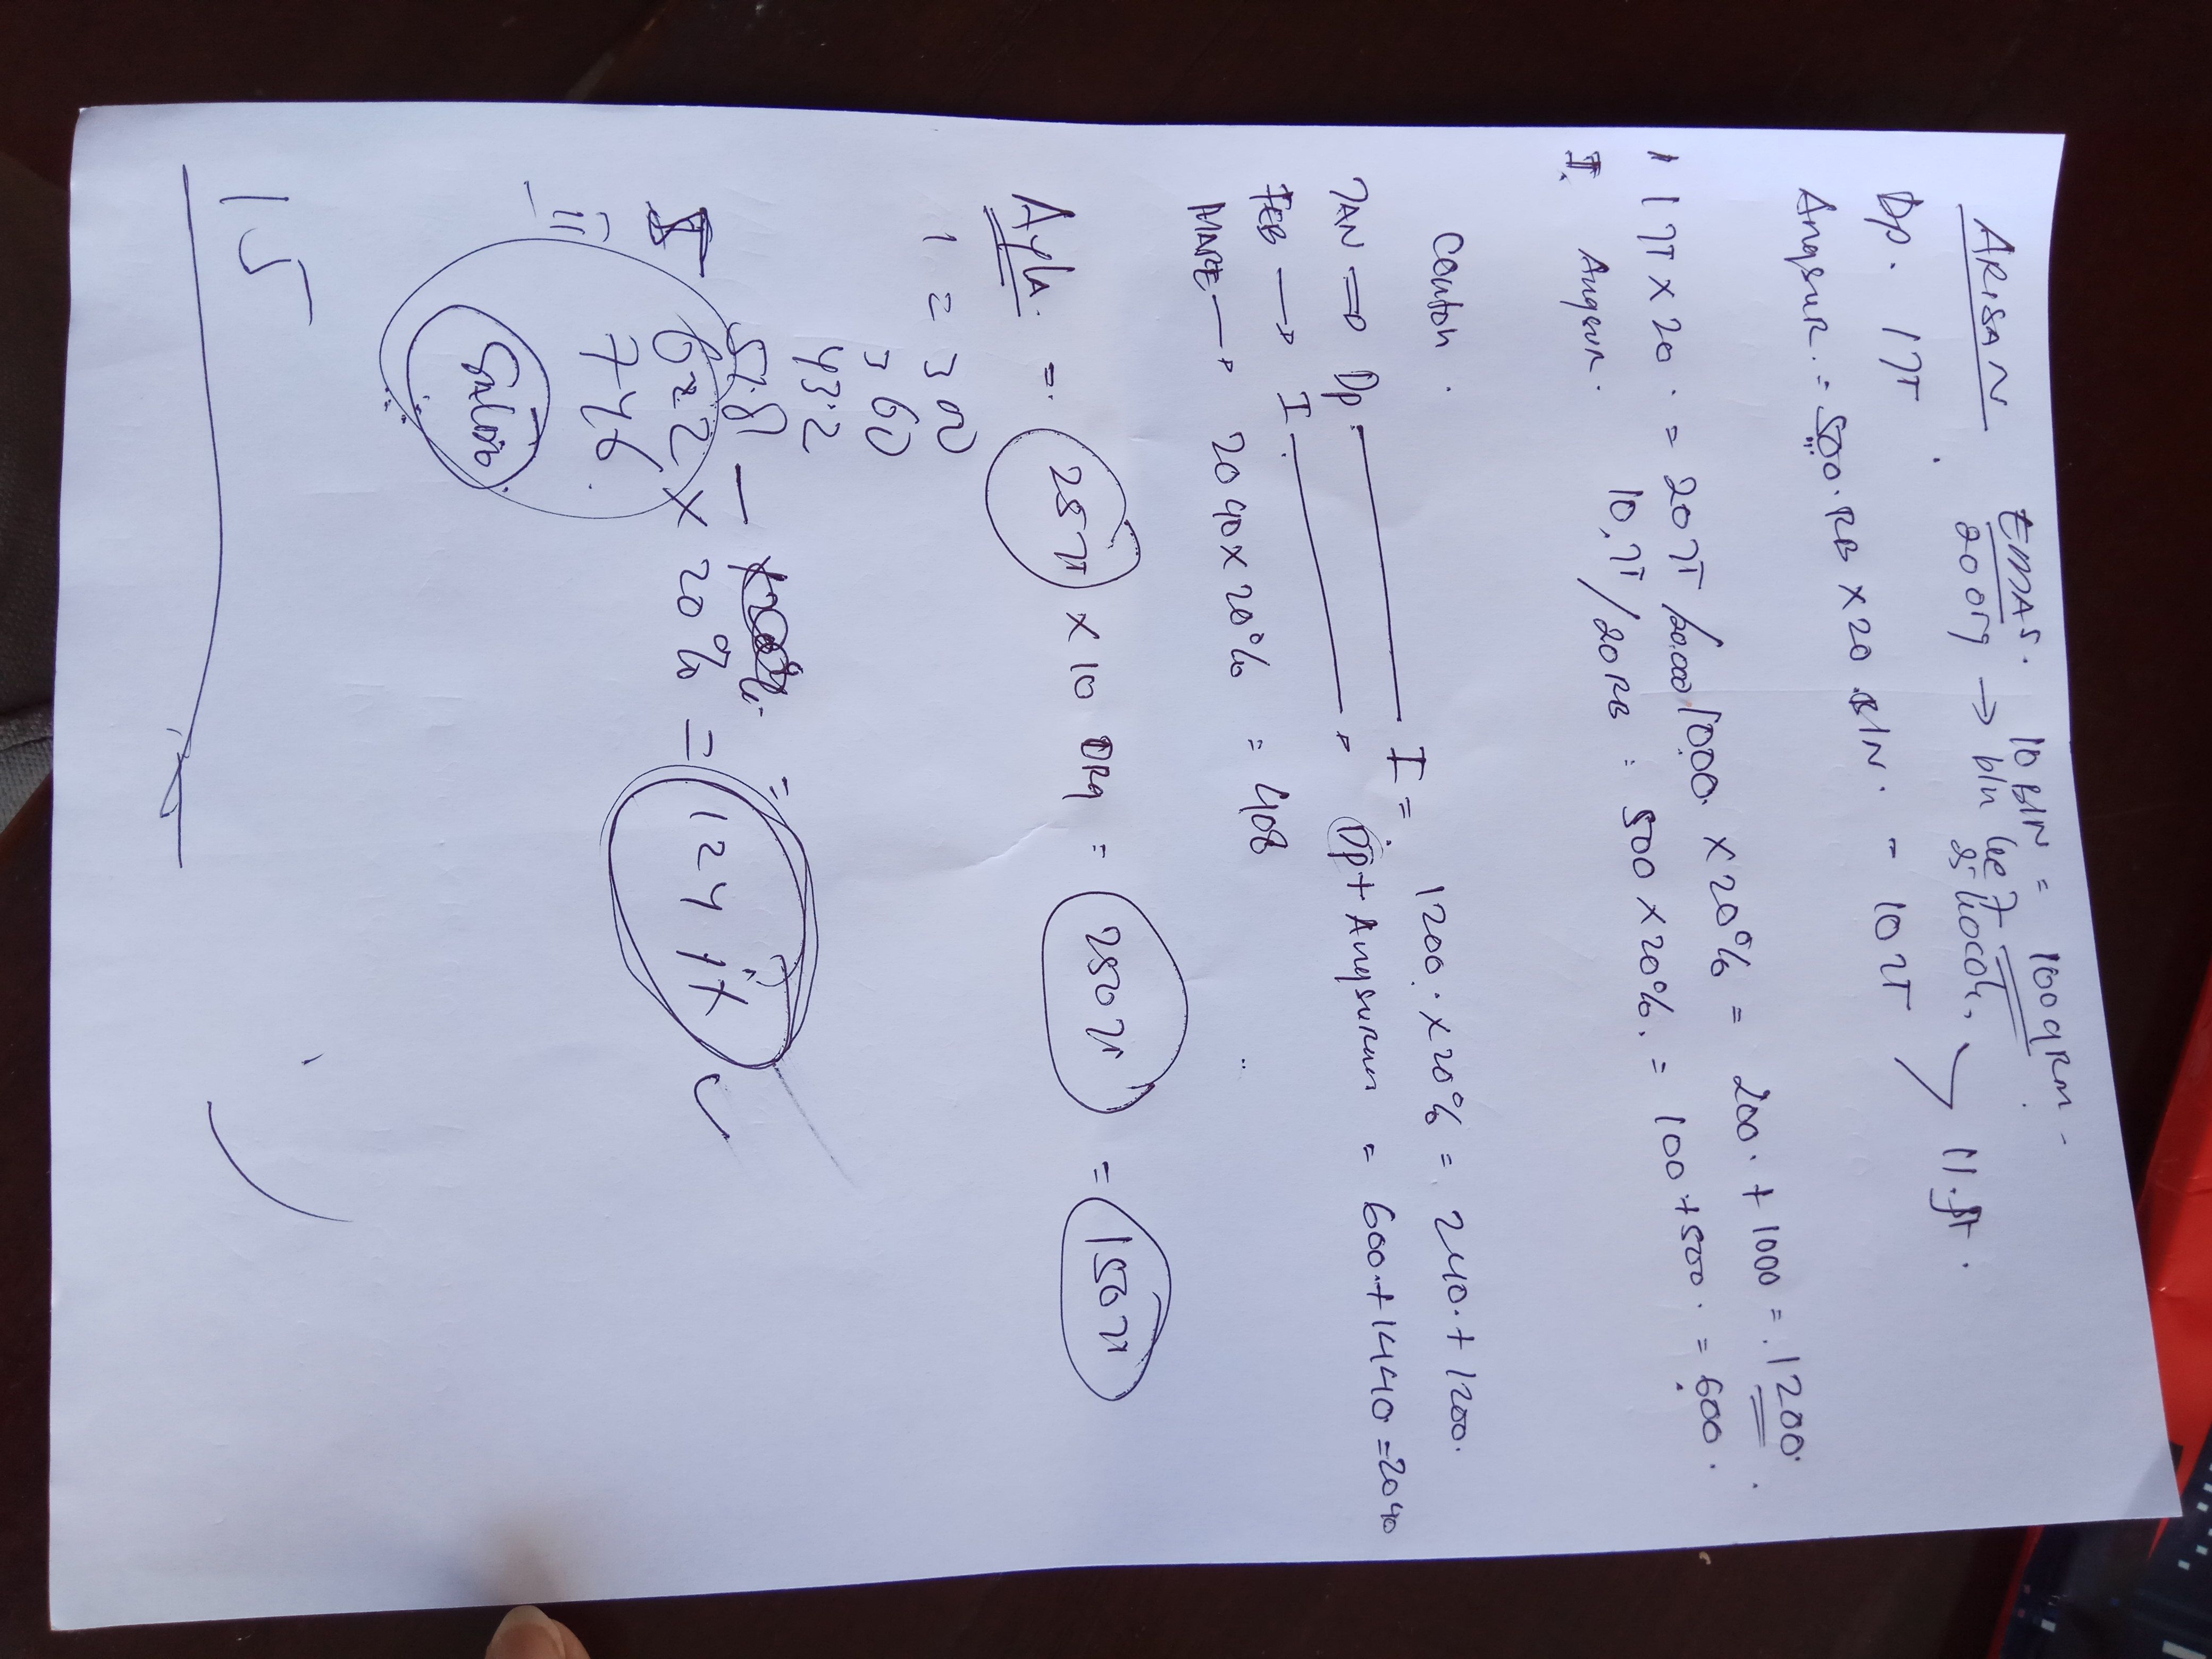 ARISAN. EMAS. 10 BLN = 100 gRM -
200rg → bln ke 7
Dp. 1 JT
Angsur. = 500. RB x 20 BLN. = 10 JT 11. JT.
1 1 JT x 20. = 20 JT / 20.000 1000. x 20% = 200. + 1000 = 1200.
II. Angsur. 10. JT / 20 RB = 500 x 20%. = 100 + 500. = 600.
Contoh.
JAN => Dp. I = 1200. x 20% = 240. + 1200.
FEB → I. → Dp + Angsuran = 600. + 1440 = 2040
MARE → 2040 x 20% = 408
Ayla. = 25 JT x 10 ORg = 250 JT = 150 JT
1 = 300
360
432
518 -
I 622 x 20% = 124 jt
II 746.
Saldo
15